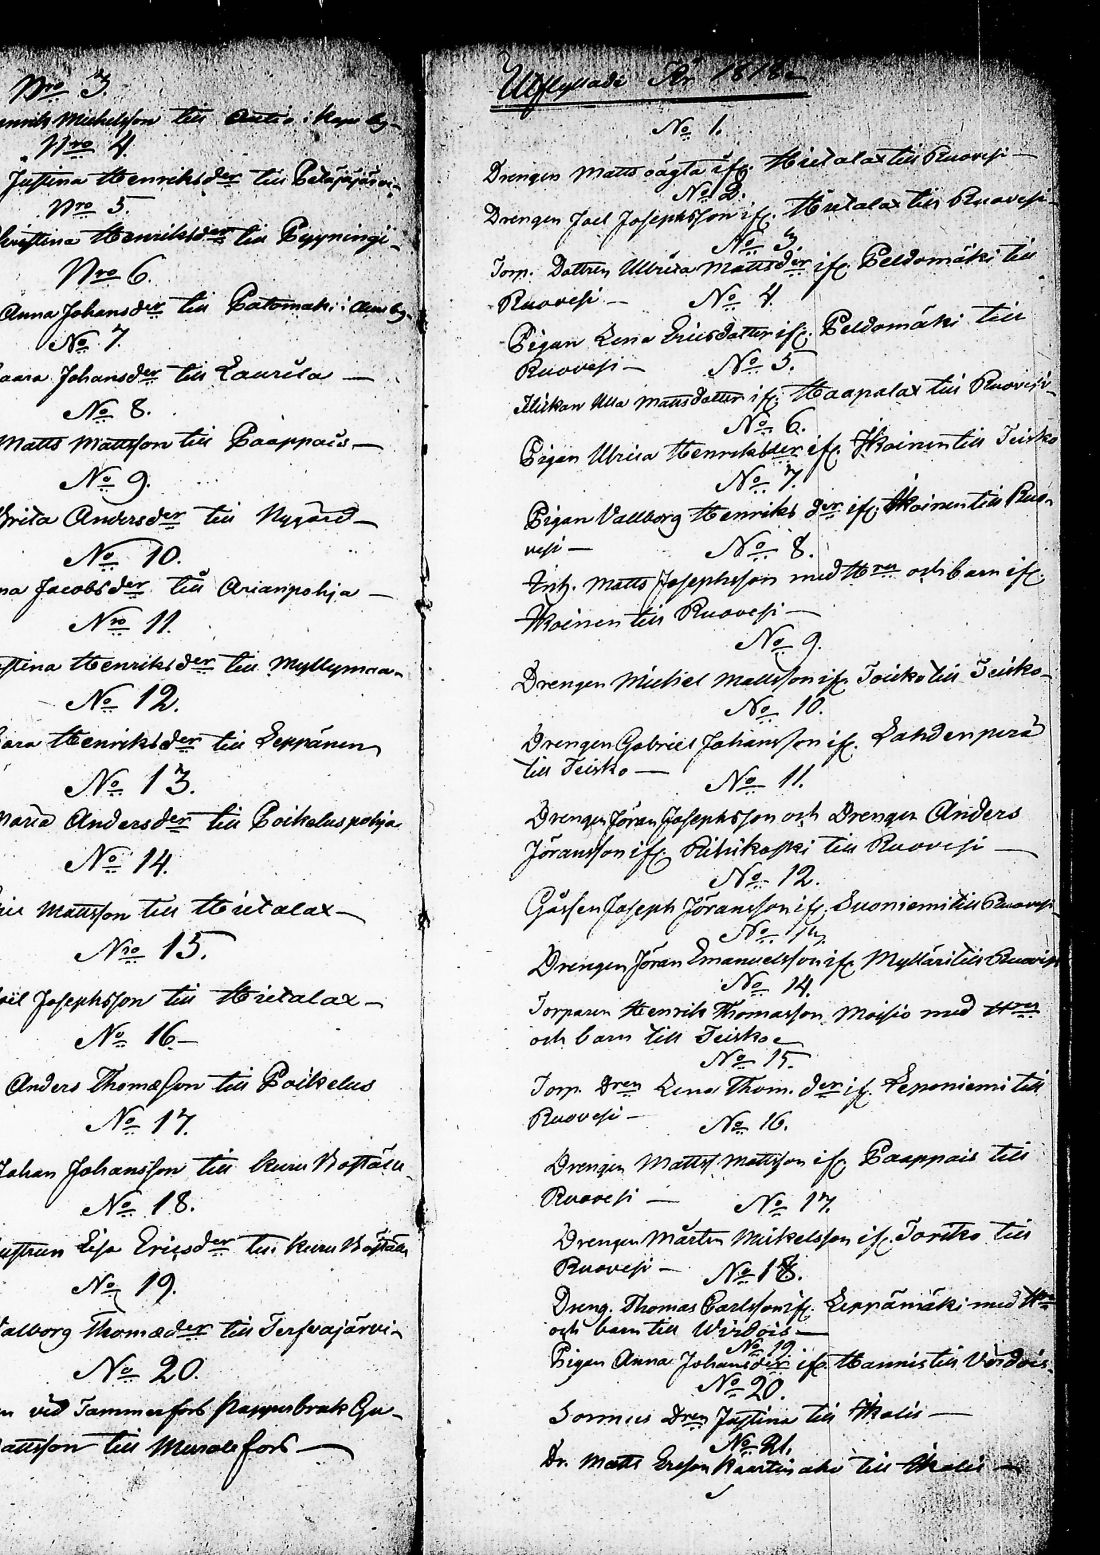 Nro 3.
Michelsson till i Kuru by
Nro 4.
Justina Henriksder till Petäjäjärvi
Nro 5.
Christina Henriksder till
Nro 6.
Anna Johansder till
Nro 7.
Johansder till Laurila
No 8.
Matts Mattsson till Paappais
No 9.
Brita Andersder till Nygård
No 10.
Jacobsder till Arianpohja
Nro 11.
Henriksder till Myllymaa
No 12.
Henriksder till Leppänen
No 13.
Maria Andersder till Poikeluspohja
No 14.
Mattsson till Hietalax
Nro 15.
Josephsson till Hietalax
No 16
Anders Thomæson till Poikelus
No 17.
Johan Johansson till Kuru
No 18.
Ericsder till Kuru
No 19.
Valborg Thomæder till Terfvajärvi
No 20.
vid Tammerfors
Mattsson till Murolefors
Utflyttade År 1818
No 1.
Drengen Matts ifr. Hietalax till Ruovesi
No 2.
Drengen Joel Josephsson ifr. Hietalax till Ruovesi
No 3
Torp. Dottren Ulrica Mattsder ifr. Peldomäki till
Ruovesi
No 4.
Pigan Lena Ericsdotter ifr. Peldomäki till
Ruovesi
No 5.
Ulla Mattsdotter ifr. Haapalax till Ruovesi
No 6.
Pigan Ulrica Henriksder ifr. Ikoinen till Teisko
No 7.
Pigan Vallborg Henriks der ifr. Ikoinen till Ruo-
vesi
No 8.
Inh. Matts Josephsson med Hru och barn ifr.
Ikoinen till Ruovesi
No 9.
Drengen Michel Mattsson ifr. till Teisko
No 10.
Drengen Gabriel Johansson ifr. Lahdenperä
till Teisko
No 11.
Drengen Jöran Josephsson och Drengen Anders
Jöransson ifr. Riihikoski till Ruovesi
No 12.
Gossen Joseph Jöransson ifr. Suoniemi till Ruovesi
No 13.
Drengen Jöran Emanuelsson ifr. Mylläri till Ruovesi
No 14.
Torparen Henrik Thomasson Moisio med Hru
och barn till Teisko
No 15.
Torp. Dren Lena Thom. der ifr. Leponiemi till
Ruovesi
No 16.
Drengen Matts Mattsson ifr. Paappais till
Ruovesi
No 17.
Drengen Mårten Mickelsson ifr. till
Ruovesi
No 18.
Dreng. Thomas Carlsson ifr. Leppämäki med Hru
och barn till Wirdois
No 19.
Pigan Anna Johansder ifr. Hannis till Virdois
No 20.
Dren Justina till Ikalis
No 21.
Dr. Matts Ersson till Ikalis